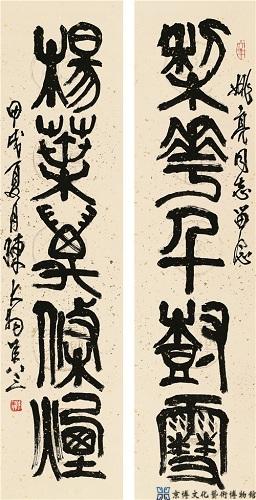 姚亮同志留念
梨華千樹雪
楊葉萬條煙
甲戌夏月陳大羽年八三
京博文化藝術博物館